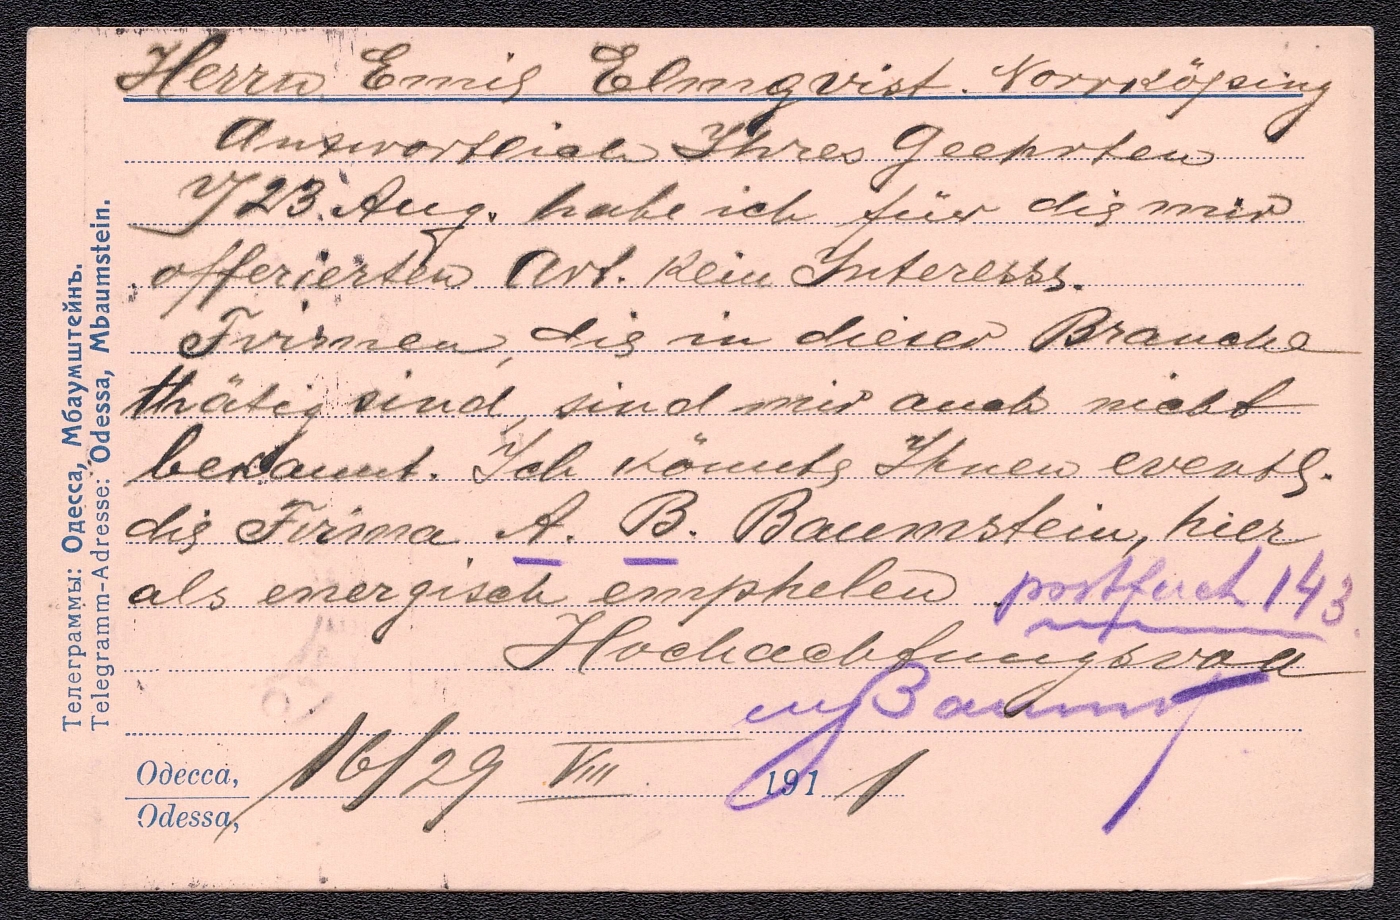 Herrn Emil Elmqvist. Norrköping
Antwortlich Ihres Geehrten
v/23. Aug. habe ich für die mir
offerierten Art. kein Interesse.
Firmen, die in dieser Branche
thätig sind, sind mir auch nicht
bekannt. Ich könnte Ihnen eventl.
die Firma A. B. Baumstein, hier
als energisch emphelen postfach 143.
Hochachtungsvoll
MBaumst
Одесса, 16/29 VIII 1911
Odessa,
Телеграммы: Одесса, Мбаумштейнъ.
Telegramm-Adresse: Odessa, Mbaumstein.